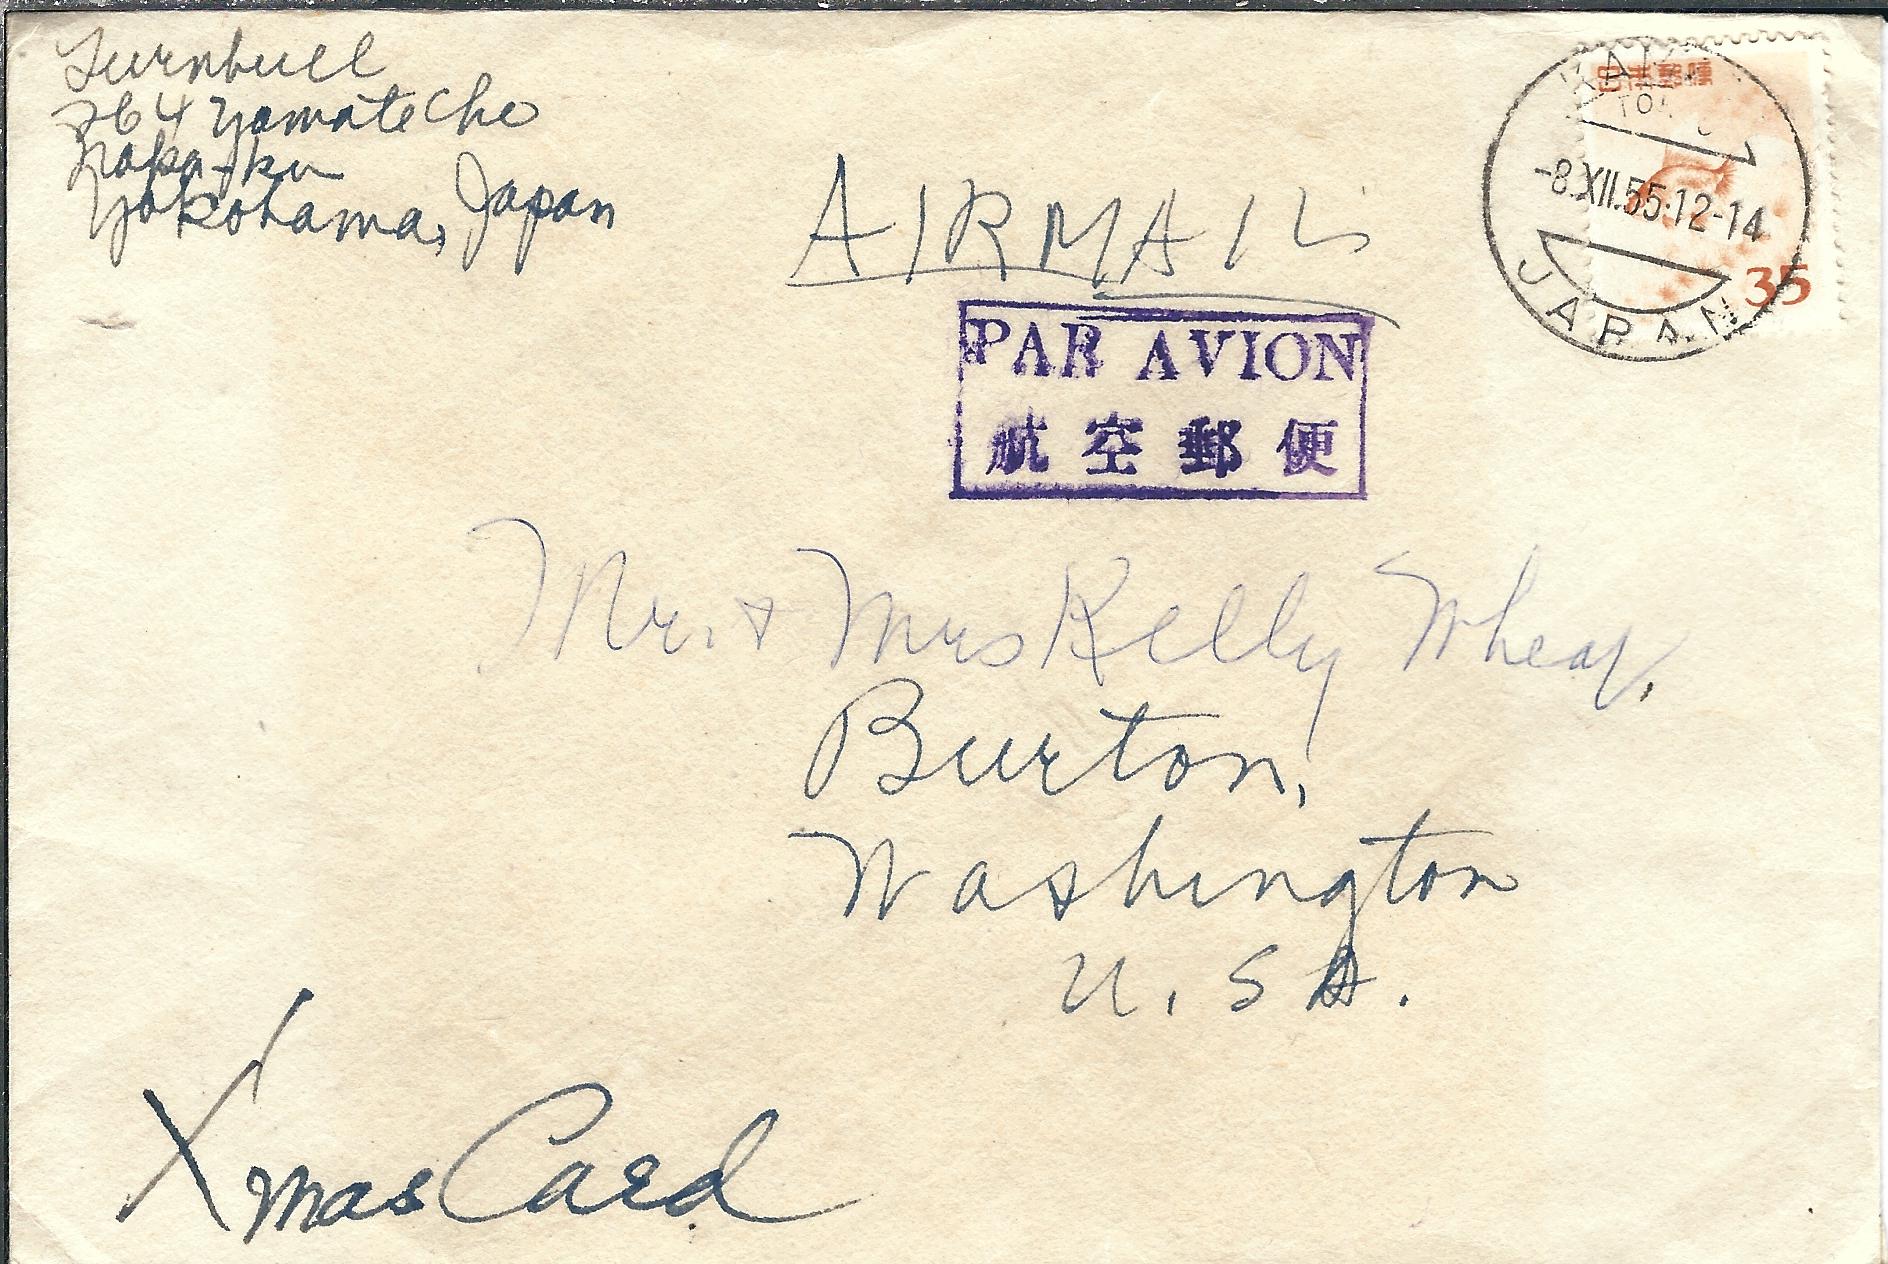 Turnbull
264 Yamate Cho
Naka-ku
Yokohama, Japan
AIRMAIL
PAR AVION
航空郵便
日本郵便
35
-8.XII.55.12-14
JAPAN
Mr. + Mrs Kelly
Burton,
Washington
U.SA.
Xmas Card